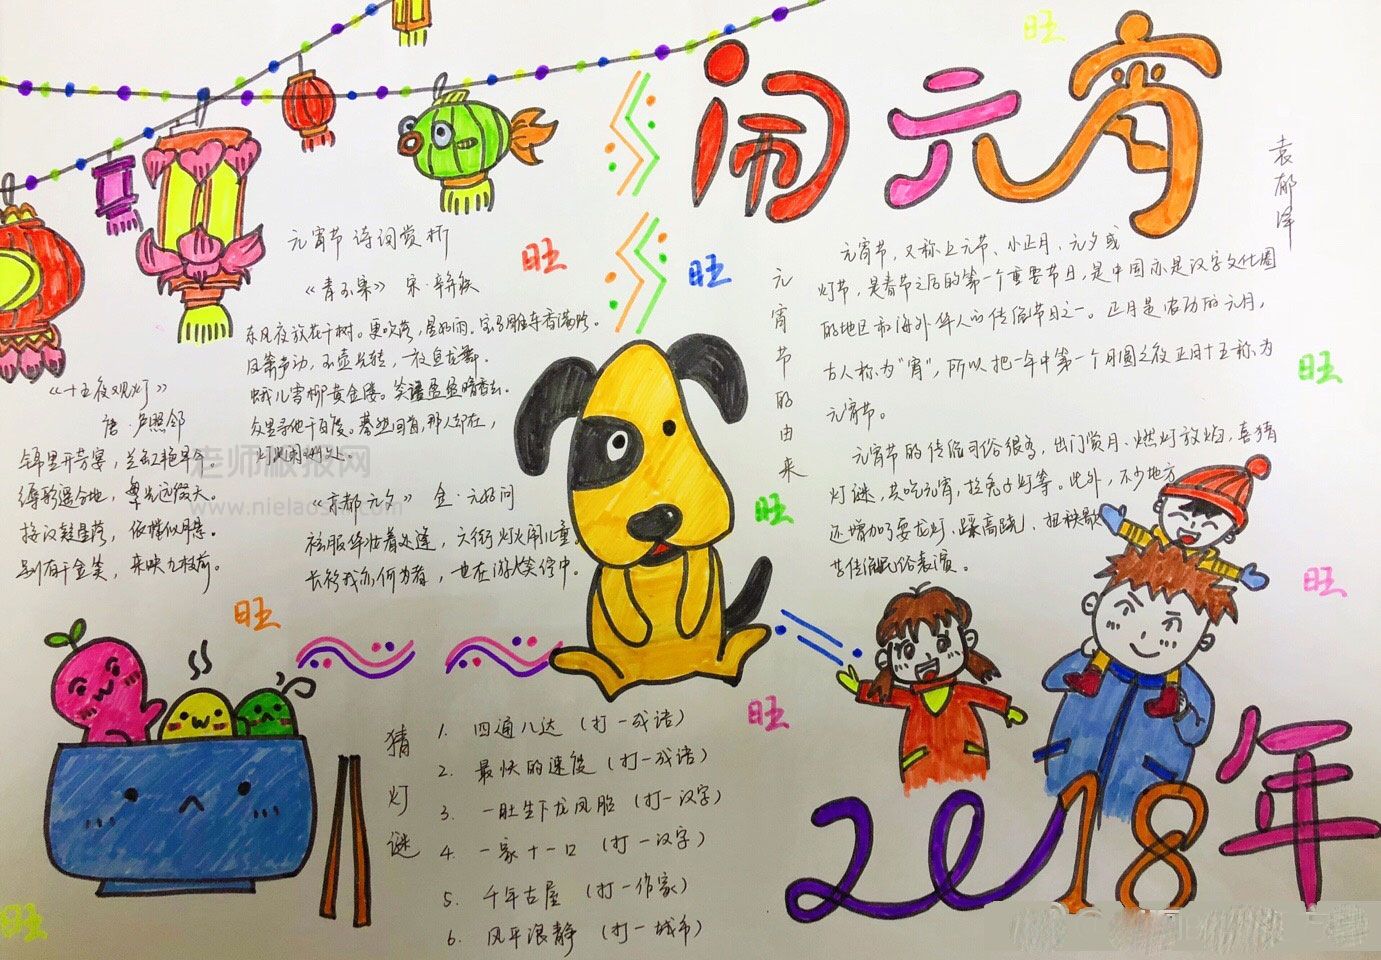 闹元宵
旺
袁郁泽
元宵节诗词赏析
《青玉案》 宋·辛弃疾
东风夜放花千树。更吹落,星如雨。宝马雕车香满路。
凤箫声动,玉壶光转,一夜鱼龙舞。
蛾儿雪柳黄金缕。笑语盈盈暗香去。
众里寻他千百度。蓦然回首,那人却在,
灯火阑珊处。
旺
旺
《十五夜观灯》
唐·卢照邻
锦里开芳宴,兰缸艳早年。
缛彩遥分地,繁光远缀天。
接汉疑星落,依楼似月悬。
别有千金笑,来映九枝前。
老师服报网
www.nielaoshi.com
《京都元夕》 金·元好问
袨服华妆着处逢,六街灯火闹儿童。
长衫我亦何为者,也在游人笑语中。
元宵节的由来
元宵节,又称上元节、小正月、元夕或
灯节,是春节之后的第一个重要节日,是中国亦是汉字文化圈
的地区和海外华人的传统节日之一。正月是农历的元月,
古人称为“宵”,所以把一年中第一个月圆之夜正月十五称为
元宵节。
元宵节的传统习俗很多,出门赏月、燃灯放焰、喜猜
灯谜、共吃元宵,拉兔子灯等。此外,不少地方
还增加了耍龙灯、踩高跷、扭秧歌
等传统民俗表演。
旺
旺
旺
旺
旺
旺
猜灯谜
1. 四通八达(打一成语)
2. 最快的速度(打一成语)
3. 一肚生下龙凤胎(打一汉字)
4. 一家十一口(打一汉字)
5. 千年古屋(打一作家)
6. 风平浪静(打一城市)
2018年